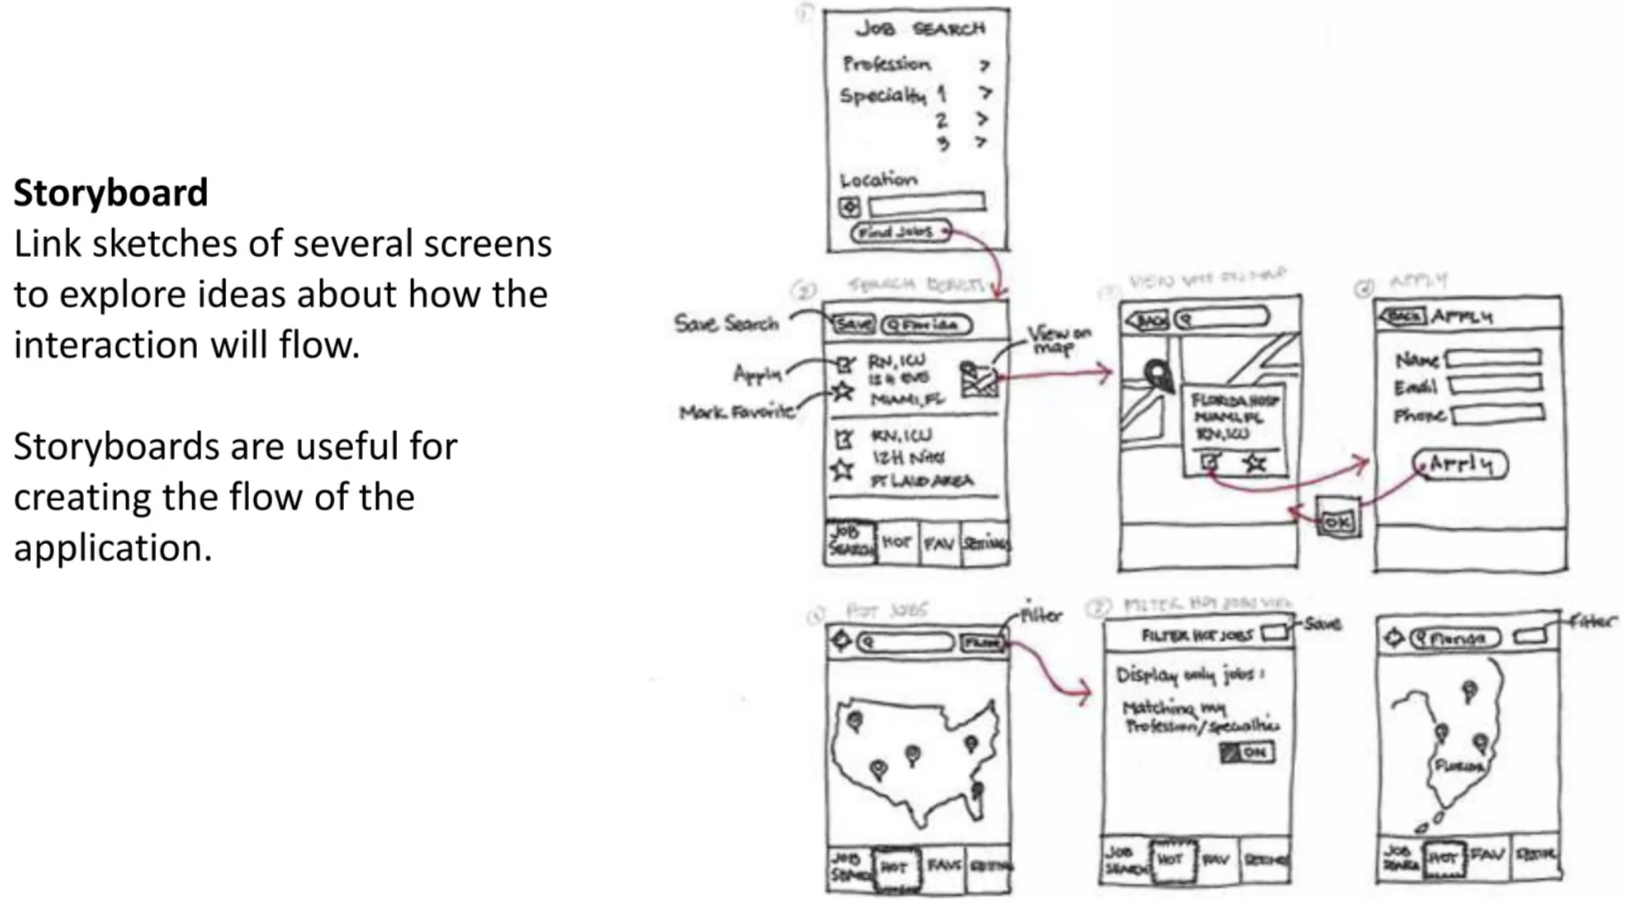 Storyboard
Link sketches of several screens
to explore ideas about how the
interaction will flow.
Storyboards are useful for
creating the flow of the
application.
JOB SEARCH
Profession >
Specialty 1 >
2 >
3 >
Location
Find Jobs
SEARCH
Save Search
Save Florida
Apply
Mark Favorite
View on
map
RN, ICU
MIAMI, FL
RN, ICU
12H Nites
AREA
JOB
SEARCH
HOT
FAV
SETTINGS
VIEW ON MAP
BACK
FLORIDA HOSP
MIAMI, FL
RN, ICU
OK
APPLY
BACK APPLY
Name
Email
Phone
Apply
HOT JOBS
Filter
Filter
JOB
SEARCH
HOT
FAVS
FILTER HOT JOBS VIEW
FILTER HOT JOBS
Save
Display only jobs:
Matching my
Profession/Specialties
ON
JOB
SEARCH
HOT
FAV
Florida
Filter
FLORIDA
JOB
SEARCH
HOT
FAV